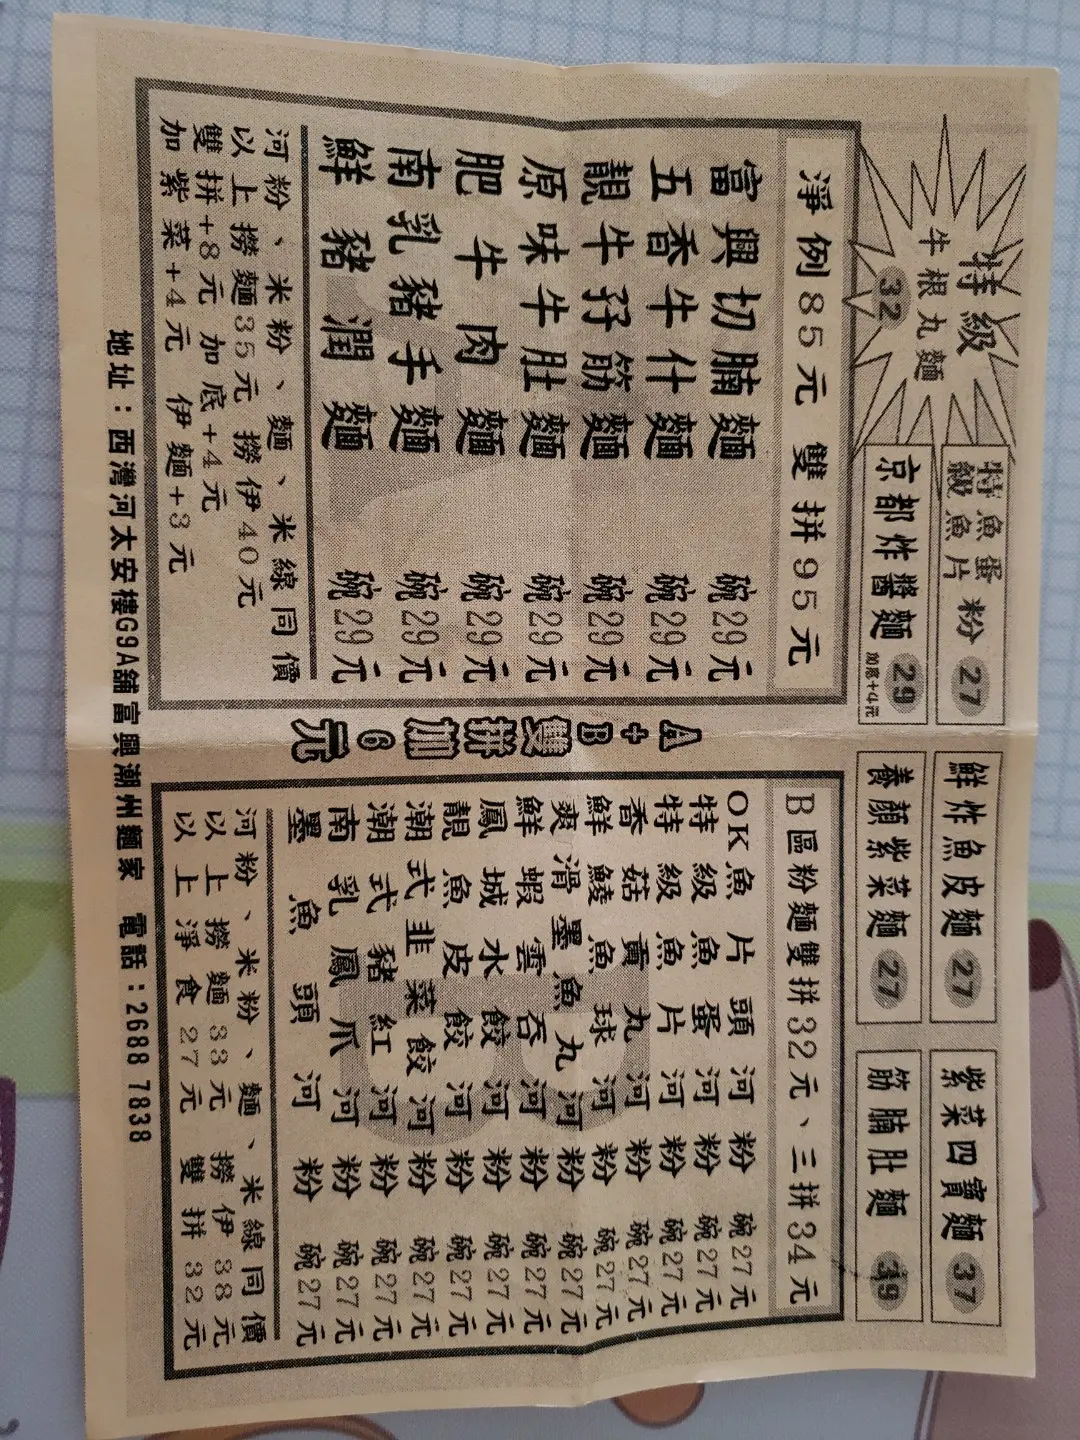 特級
牛根丸麵
32
特級魚蛋粉
魚片
27
京都炸醬麵 29
加底+4元
鮮炸魚皮麵 27
養顏紫菜麵 27
紫菜四寶麵 37
筋腩肚麵 39
淨例85元 雙拼95元
富興切腩麵 碗29元
五香牛什麵 碗29元
靚牛孖筋麵 碗29元
原味牛肚麵 碗29元
肥牛肉麵 碗29元
南乳豬手麵 碗29元
鮮豬潤麵 碗29元
河粉、米粉、麵、米線同價
以上撈麵35元 撈伊40元
雙拼+8元 加底+4元
加紫菜+4元 伊麵+3元
A+B雙拼加6元
B區粉麵雙拼32元、三拼34元
OK魚片頭河粉 碗27元
特級魚蛋河粉 碗27元
特級魚片河粉 碗27元
香菇貢丸河粉 碗27元
鮮鯪魚球河粉 碗27元
爽滑墨魚丸河粉 碗27元
鮮蝦雲吞河粉 碗27元
鳳城水餃河粉 碗27元
靚魚皮餃河粉 碗27元
潮式韭菜餃河粉 碗27元
潮式豬紅河粉 碗27元
南乳鳳爪河粉 碗27元
墨魚頭河粉 碗27元
河粉、米粉、麵、米線同價
以上撈麵33元 撈伊38元
以上淨食27元 雙拼32元
地址：西灣河太安樓G9A舖富興潮州麵家 電話：2688 7838